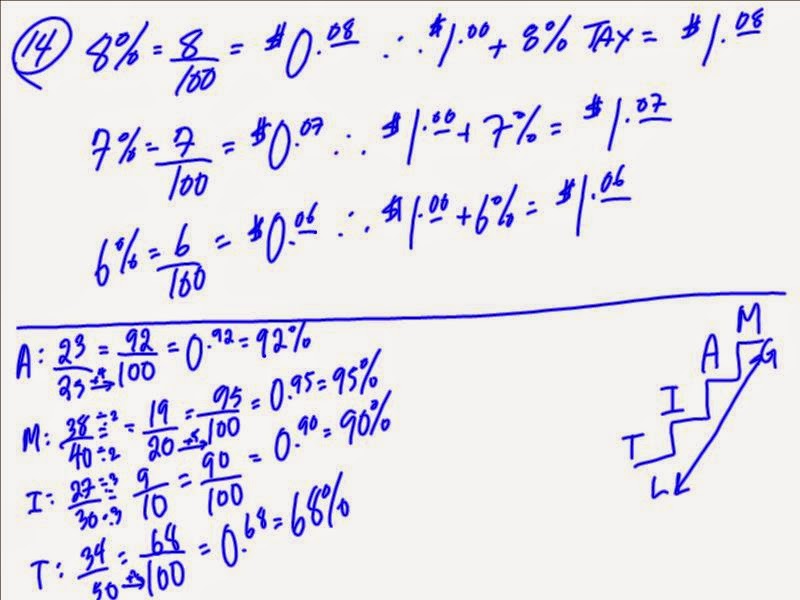 14 8% = 8/100 = $0.08 ∴ $1.00 + 8% TAX = $1.08
7% = 7/100 = $0.07 ∴ $1.00 + 7% = $1.07
6% = 6/100 = $0.06 ∴ $1.00 + 6% = $1.06
A: 23/25 = 92/100 = 0.92 = 92%
M: 38/40 ÷2 ÷2 = 19/20 = 95/100 = 0.95 = 95%
I: 27/30 ÷3 ÷3 = 9/10 = 90/100 = 0.90 = 90%
T: 34/50 = 68/100 = 0.68 = 68%
M
G
A
I
T
L